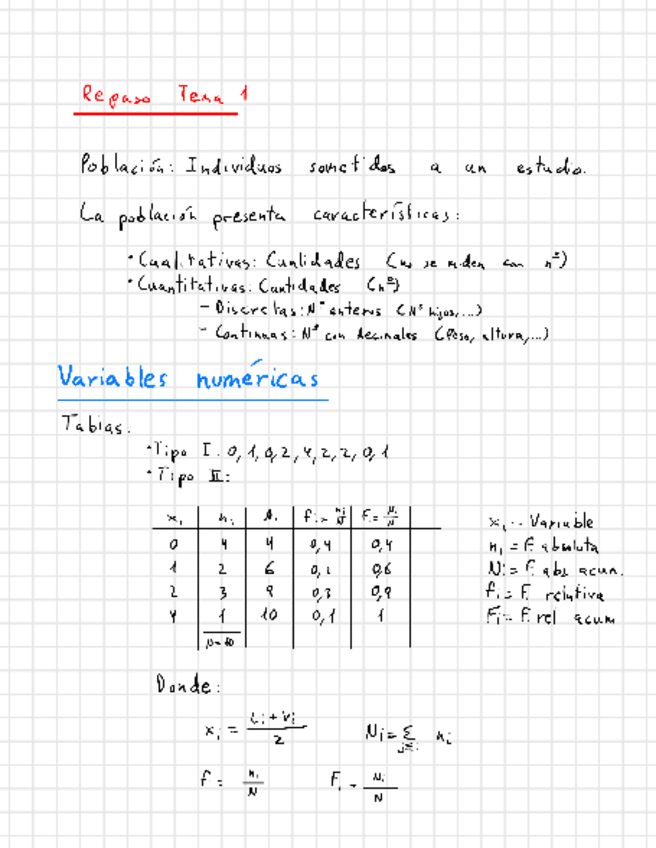 Repaso Tema 1
Población: Individuos sometidos a un estudio.
La población presenta características:
· Cualitativas: Cualidades (no se miden con nº)
· Cuantitativas: Cantidades (nº)
– Discretas: Nº enteros (Nº hijos,...)
– Continuas: Nº con decimales (Peso, altura,...)
Variables numéricas
Tablas.
· Tipo I. 0, 1, 0, 2, 4, 2, 2, 0, 1
· Tipo II:
xi ni Ni fi = ni/N Fi = Ni/N
0 4 4 0,4 0,4
1 2 6 0,2 0,6
2 3 9 0,3 0,9
4 1 10 0,1 1
N=10
xi .. Variable
ni = F. absoluta
Ni = F. abs acum.
fi = F. relativa
Fi = F. rel acum
Donde:
xi = (Li + Vi)/2 Ni = Σ ni
f = ni/N Fi = Ni/N